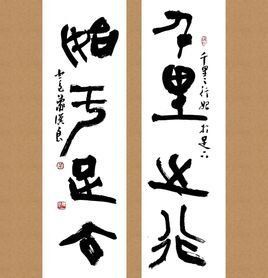 千里之行
千里之行始於足下
始于足下
漢良